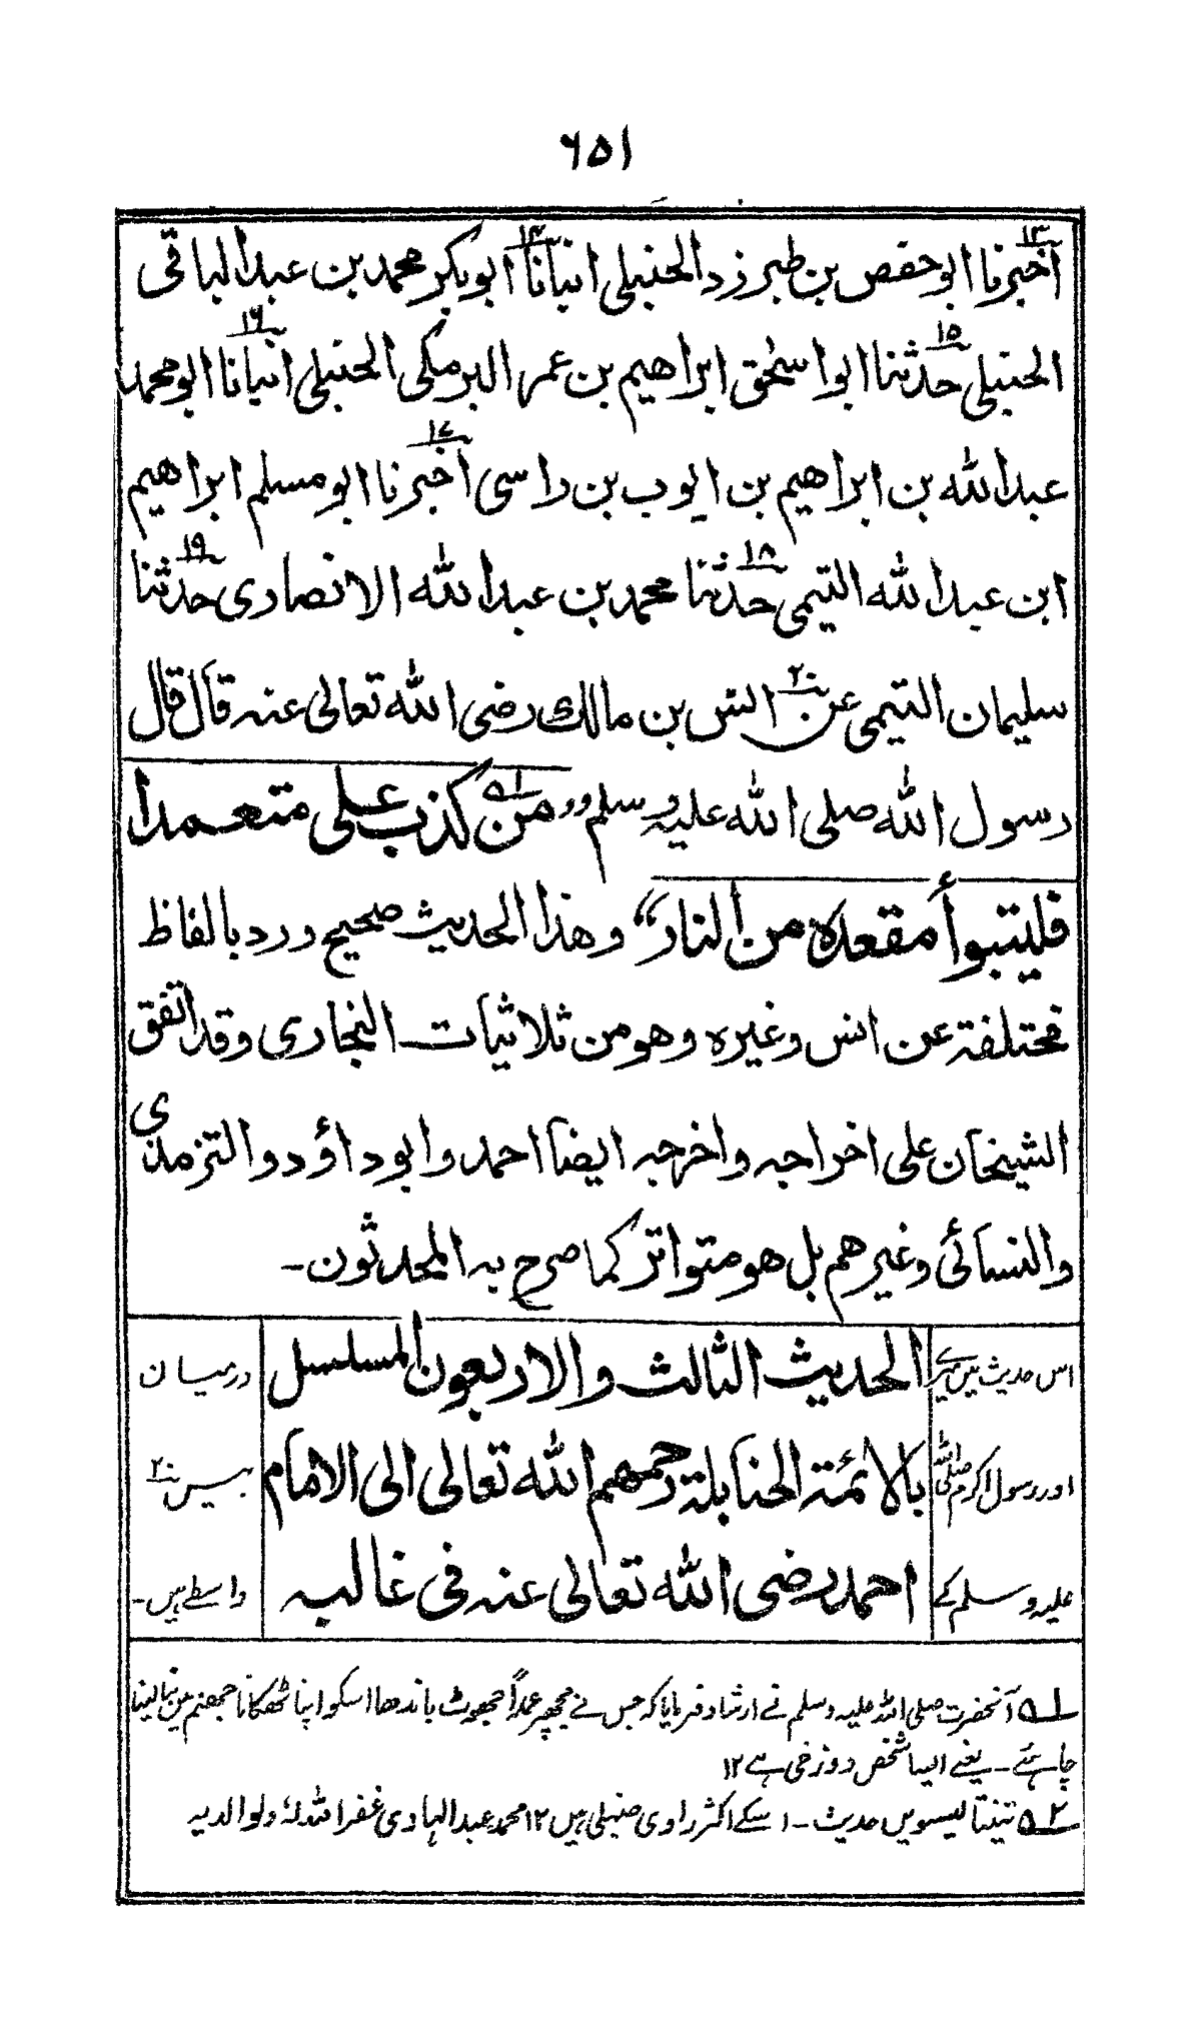 ٦٥١
١٣
اخبرنا ابوحفص بن طبرزد الحنبلی انبانا ١٤ ابوبکر محمد بن عبدالباقی
الحنبلی حدثنا ١٥ ابو اسحٰق ابراهیم بن عمر البرمکی الحنبلی انبانا ١٦ ابو محمد
عبدالله بن ابراهیم بن ایوب بن راسی اخبرنا ١٧ ابو مسلم ابراهیم
ابن عبدالله التیمی حدثنا ١٨ محمد بن عبدالله الانصاری حدثنا ١٩
سلیمان التیمی عن ٢٠ انس بن مالك رضی الله تعالی عنه قال قال
رسول الله صلی الله علیه وسلم ”من ١ه کذب علی متعمدا
فلیتبوأ مقعده من النار“ وهذا الحدیث صحیح ورد بالفاظ
مختلفة عن انس وغیره وهو من ثلاثیات البخاری وقد اتفق
الشیخان علی اخراجه واخرجه ایضا احمد وابوداؤد والترمذی
والنسائی وغیرهم بل هو متواتر کما صرح به المحدثون۔
اس حدیث میں میرے الحدیث الثالث والاربعون المسلسل درمیان
اور رسول اکرم صلی اللہ بالائمة الحنابلة رحمهم الله تعالی الی الامام بیس ٢٠
علیہ وسلم کے احمد رضی الله تعالی عنه فی غالبه واسطے ہیں۔
١ه آنحضرت صلی اللہ علیہ وسلم نے ارشاد فرمایا کہ جس نے مجھپر عمداً جھوٹ باندھا اسکو اپنا ٹھکانا جہنم میں بنالینا
چاہئے۔ یعنے ایسا شخص دوزخی ہے ١٢
٢ه تینتالیسویں حدیث۔ اسکے اکثر راوی حنبلی ہیں ١٢ محمد عبدالہادی غفر اللہ لہٗ ولوالدیہ